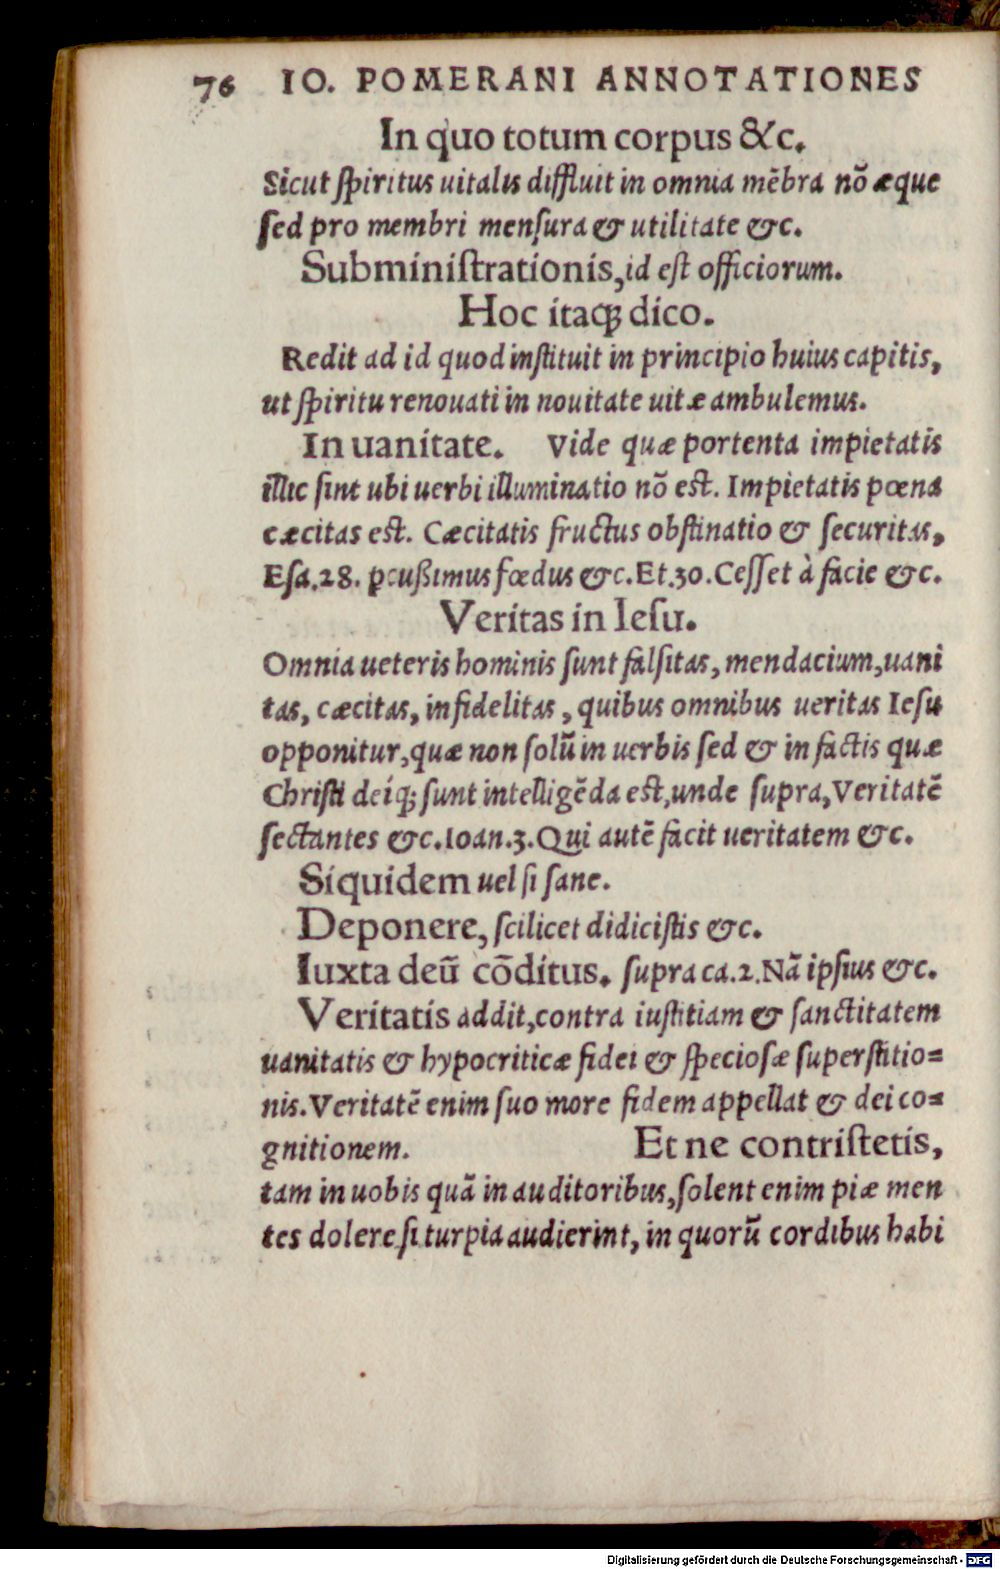 76 IO. POMERANI ANNOTATIONES
In quo totum corpus &c.
Sicut ſpiritus uitalis diffluit in omnia mẽbra nõ æque
ſed pro membri menſura & utilitate &c.
Subminiſtrationis, id eſt officiorum.
Hoc itaq; dico.
Redit ad id quod inſtituit in principio huius capitis,
ut ſpiritu renouati in nouitate uitæ ambulemus.
In uanitate. Vide quæ portenta impietatis
illic ſint ubi uerbi illuminatio nõ eſt. Impietatis pœna
cæcitas eſt. Cæcitatis fructus obſtinatio & ſecuritas,
Eſa.28. ꝑcußimus fœdus &c. Et.30. Ceſſet à facie &c.
Veritas in Ieſu.
Omnia ueteris hominis ſunt falſitas, mendacium, uani
tas, cæcitas, infidelitas, quibus omnibus ueritas Ieſu
opponitur, quæ non ſolũ in uerbis ſed & in factis quæ
Chriſti deíq; ſunt intelligẽda eſt, unde ſupra, Veritatẽ
ſectantes &c. Ioan.3. Qui autẽ facit ueritatem &c.
Siquidem uel ſi ſane.
Deponere, ſcilicet didiciſtis &c.
Iuxta deũ cõditus. ſupra ca.2. Nã ipſius &c.
Veritatis addit, contra iuſtitiam & ſanctitatem
uanitatis & hypocriticæ fidei & ſpecioſæ ſuperſtitio=
nis. Veritatẽ enim ſuo more fidem appellat & dei co=
gnitionem. Et ne contriſtetis,
tam in uobis quã in auditoribus, ſolent enim piæ men
tes dolere ſi turpia audierint, in quorũ cordibus habi
Digitalisierung gefördert durch die Deutsche Forschungsgemeinschaft - DFG